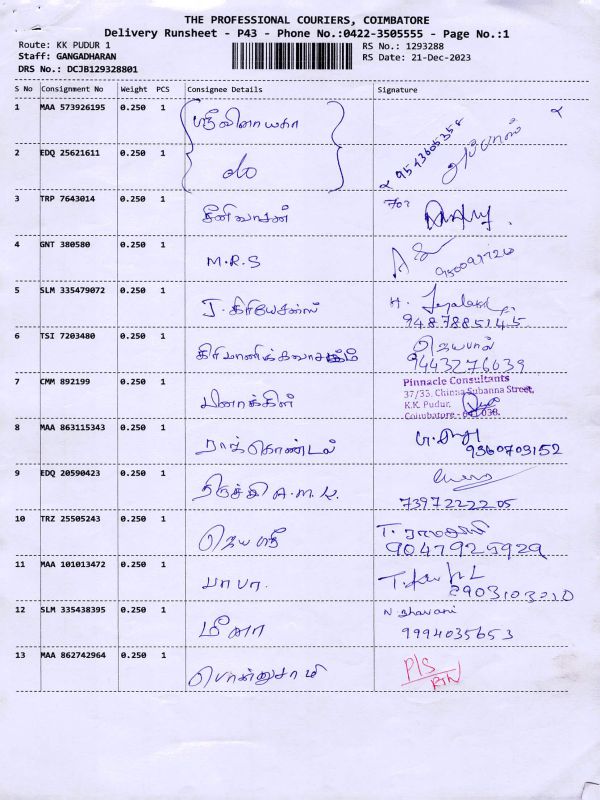 THE PROFESSIONAL COURIERS, COIMBATORE
Delivery Runsheet - P43 - Phone No.:0422-3505555 - Page No.:1
Route: KK PUDUR 1
RS No.: 1293288
Staff: GANGADHARAN
RS Date: 21-Dec-2023
DRS No.: DCJB129328801
S No Consignment No Weight PCS Consignee Details Signature
1 MAA 573926195 0.250 1 ஸ்ரீ விநாயகா
2 EDQ 25621611 0.250 1
3 TRP 7643014 0.250 1 சீனிவாசன்
4 GNT 380580 0.250 1 M.R.S
5 SLM 335479072 0.250 1 J. H.
9487885145
6 TSI 7203480 0.250 1 ஜெயபால்
9443276039
7 CMM 892199 0.250 1 Pinnacle Consultants
37/33, Chinna Subanna Street,
K.K. Pudur,
Coimbatore - 641 038.
8 MAA 863115343 0.250 1 9360703152
9 EDQ 20590423 0.250 1 திருச்சி A.M.K. 7397222205
10 TRZ 25505243 0.250 1 ஜெயஸ்ரீ T.
9047925929
11 MAA 101013472 0.250 1 பாபா.
12 SLM 335438395 0.250 1 மீனா N Bhavani
9994035653
13 MAA 862742964 0.250 1 பொன்னுசாமி P/S
RTN